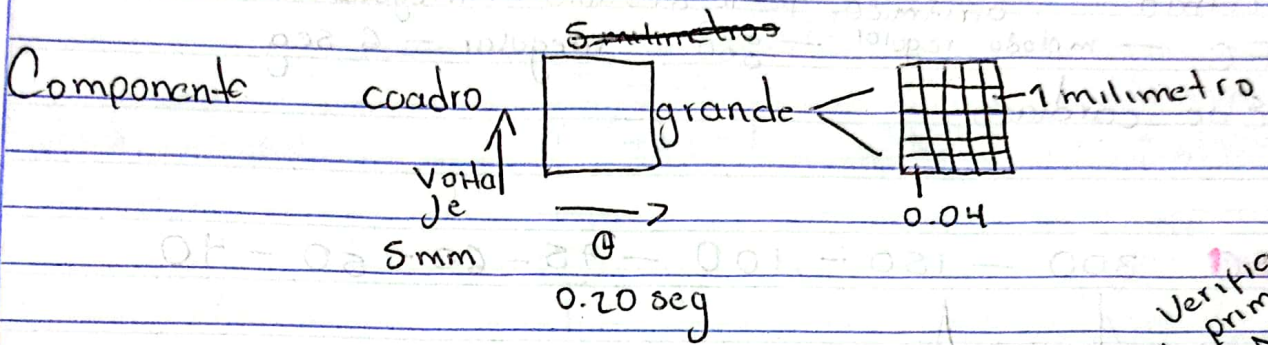 5 milimetros
Componente cuadro grande 1 milimetro
Voltaje
je
5 mm
0.04
0.20 seg
300 - 150 - 100 - 75 - 60 - 50 -
Verific
prim